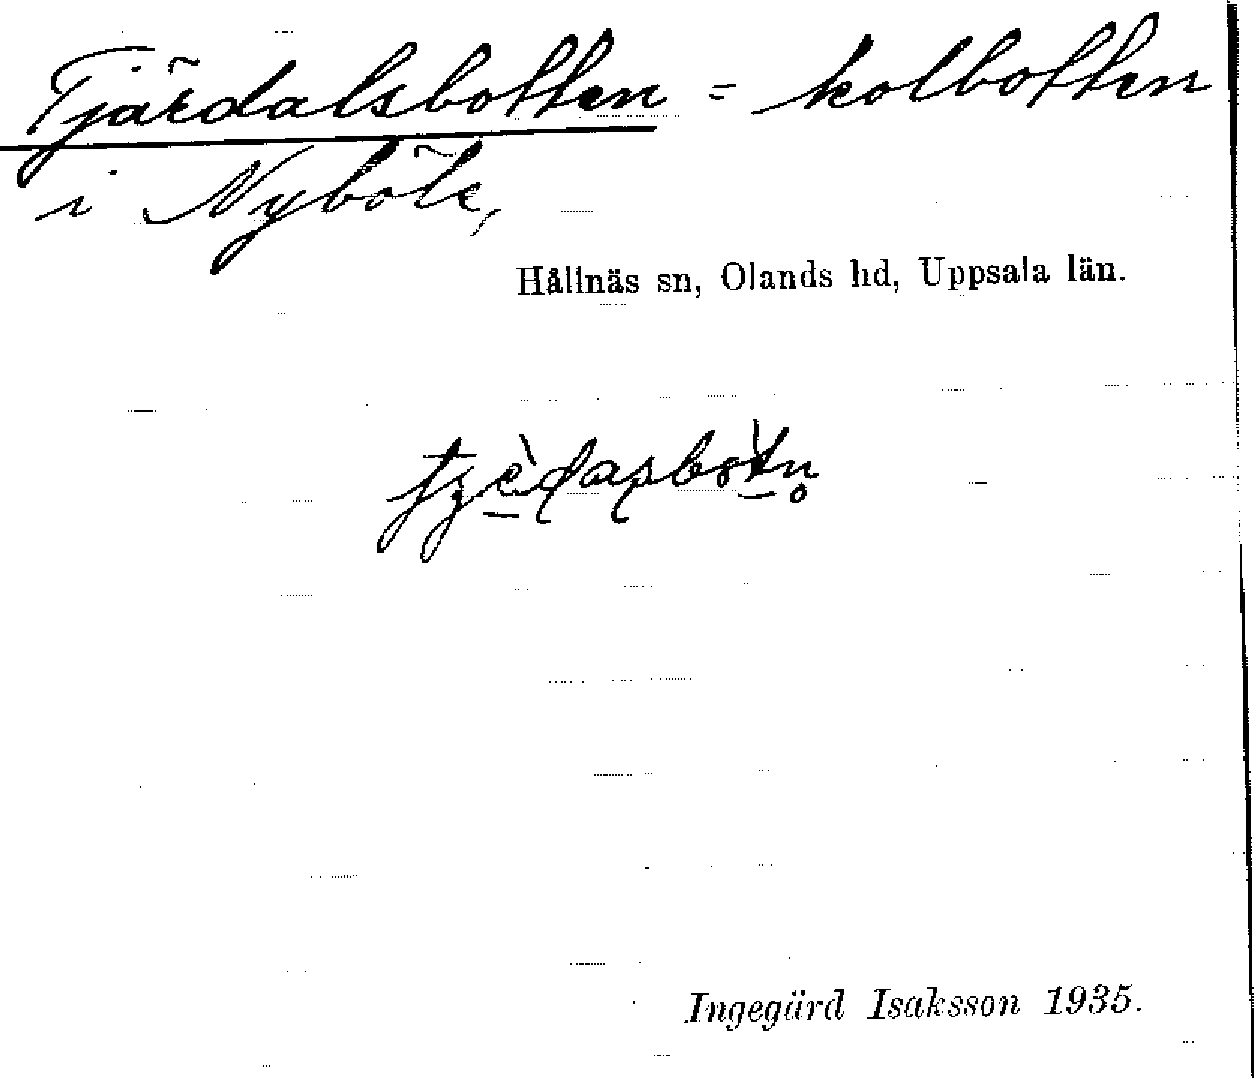 Tjärdalsbotten = kolbotten
i Nyböle,
Hållnäs sn, Olands hd, Uppsala län.
Ingegärd Isaksson 1935.